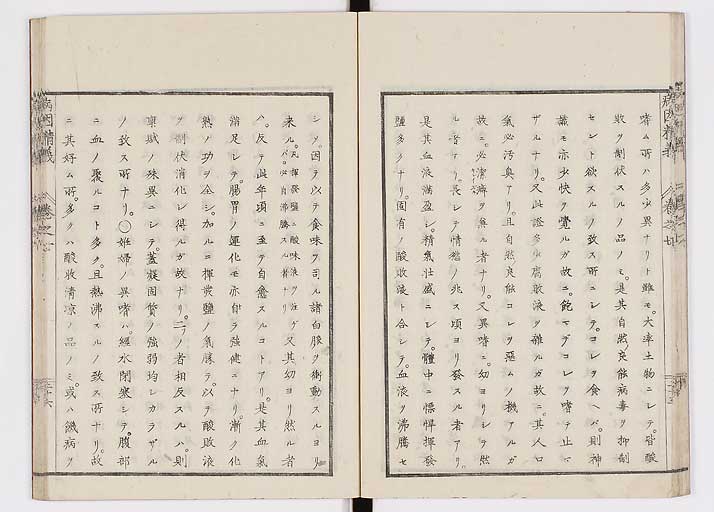 嗜ム所ハ多少異ナリト雖モ。大率土物ニシテ。皆酸
敗ヲ制伏スルノ品ノミ。是其自然良能病毒ヲ抑制
セント欲スルノ致ス所ニシテ。コレヲ食ヘバ。則神
識モ亦少快ヲ覚ルガ故ニ。飽マデコレヲ嗜テ止マ
ザルナリ。又此證多ク腐敗液ヲ雑ルガ故ニ。其人口
氣必汚臭アリ。且自然良能コレヲ惡ムノ機アルガ
故ニ。必潔癖ヲ兼ル者ナリ。又異嗜ニ。幼ヨリシテ然
ル者アリ。長シテ情慾ノ兆ス頃ヨリ發スル者アリ。
是其血液満盈シ。精氣壮盛ニシテ。體中ニ慓悍揮發
鹽多クナリ。固有ノ酸敗液ト合シテ。血液ヲ沸騰セ
シメ。因テ以テ食味ヲ司ル諸自腺ヲ衝動スルヨリ
来ル。凡揮發鹽ニ酸味液ヲ注グバ。必自沸騰スル者ナリ 又其幼ヨリ然ル者
ハ。反テ此年頃ニ至テ自愈スルコトアリ。是其血氣
満足シテ。腸胃ノ運化モ亦自ラ強健ニナリ。漸ク化
熟ノ功ヲ全シ。加ルニ揮發鹽ノ氣勝テ。以テ酸敗液
ヲ制伏消化シ得ルガ故ナリ。二ツノ者相反スルハ。則
稟賦ノ殊異ニシテ。蓋凝固質ノ強弱均シカラザル
ノ致ス所ナリ。〇姙婦ノ異嗜ハ。經水閉塞シテ。腹部
ニ血ノ聚ルコト多ク。且熱沸スルノ致ス所ナリ。故
ニ其好ム所。多クハ酸收清凉ノ品ノミ。或ハ饑病ヲ
病因精義
巻之七